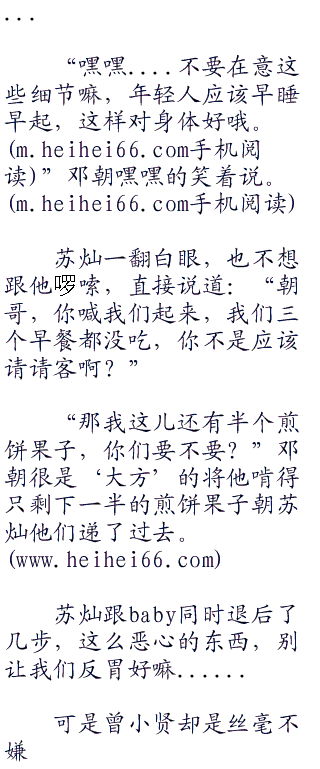 ...
“嘿嘿....不要在意这
些细节嘛，年轻人应该早睡
早起，这样对身体好哦。
(m.heihei66.com手机阅
读)”邓朝嘿嘿的笑着说。
(m.heihei66.com手机阅读)
苏灿一翻白眼，也不想
跟他啰嗦，直接说道：“朝
哥，你喊我们起来，我们三
个早餐都没吃，你不是应该
请请客啊？”
“那我这儿还有半个煎
饼果子，你们要不要？”邓
朝很是‘大方’的将他啃得
只剩下一半的煎饼果子朝苏
灿他们递了过去。
(www.heihei66.com)
苏灿跟baby同时退后了
几步，这么恶心的东西，别
让我们反胃好嘛......
可是曾小贤却是丝毫不
嫌